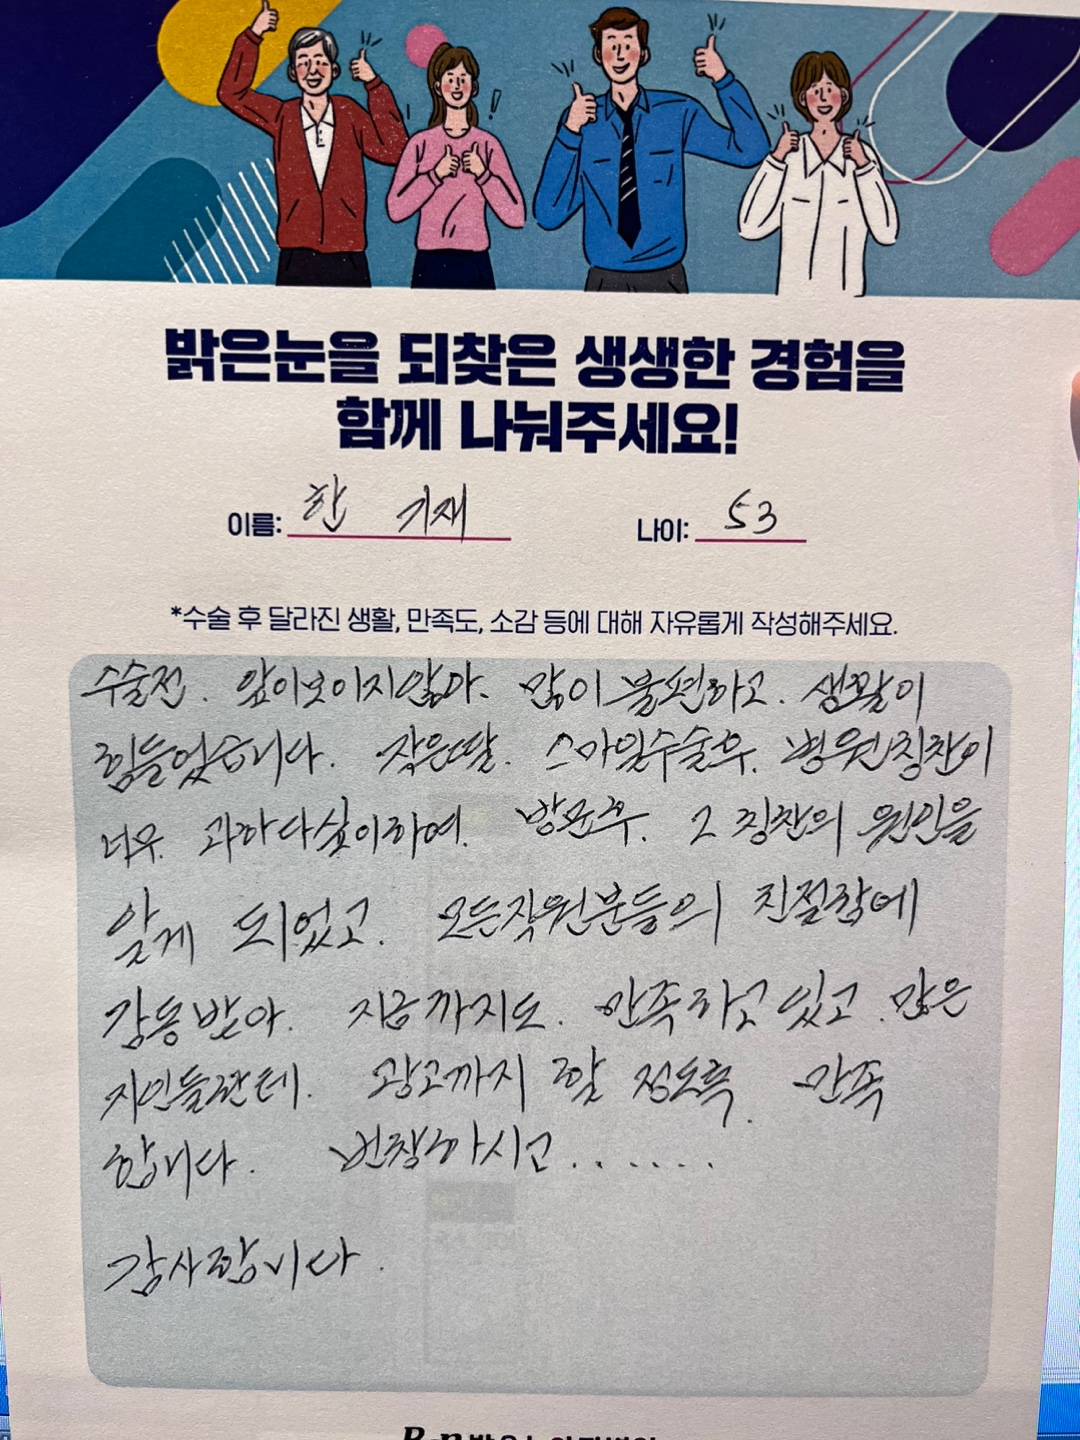 밝은눈을 되찾은 생생한 경험을
함께 나눠주세요!
이름: 한 기재 나이: 53
*수술 후 달라진 생활, 만족도, 소감 등에 대해 자유롭게 작성해주세요.
수술전. 앞이보이지않아. 많이 불편하고. 생활이
힘들었습니다. 작은딸. 스마일수술후. 병원칭찬이
너무 과하다싶이하여. 방문후. 그 칭찬의 원인을
알게 되었고. 모든직원분들의 친절함에
감동받아. 지금까지도. 만족하고 있고. 많은
지인들한테. 광고까지 할 정도록. 만족
합니다. 번창하시고.......
감사합니다.